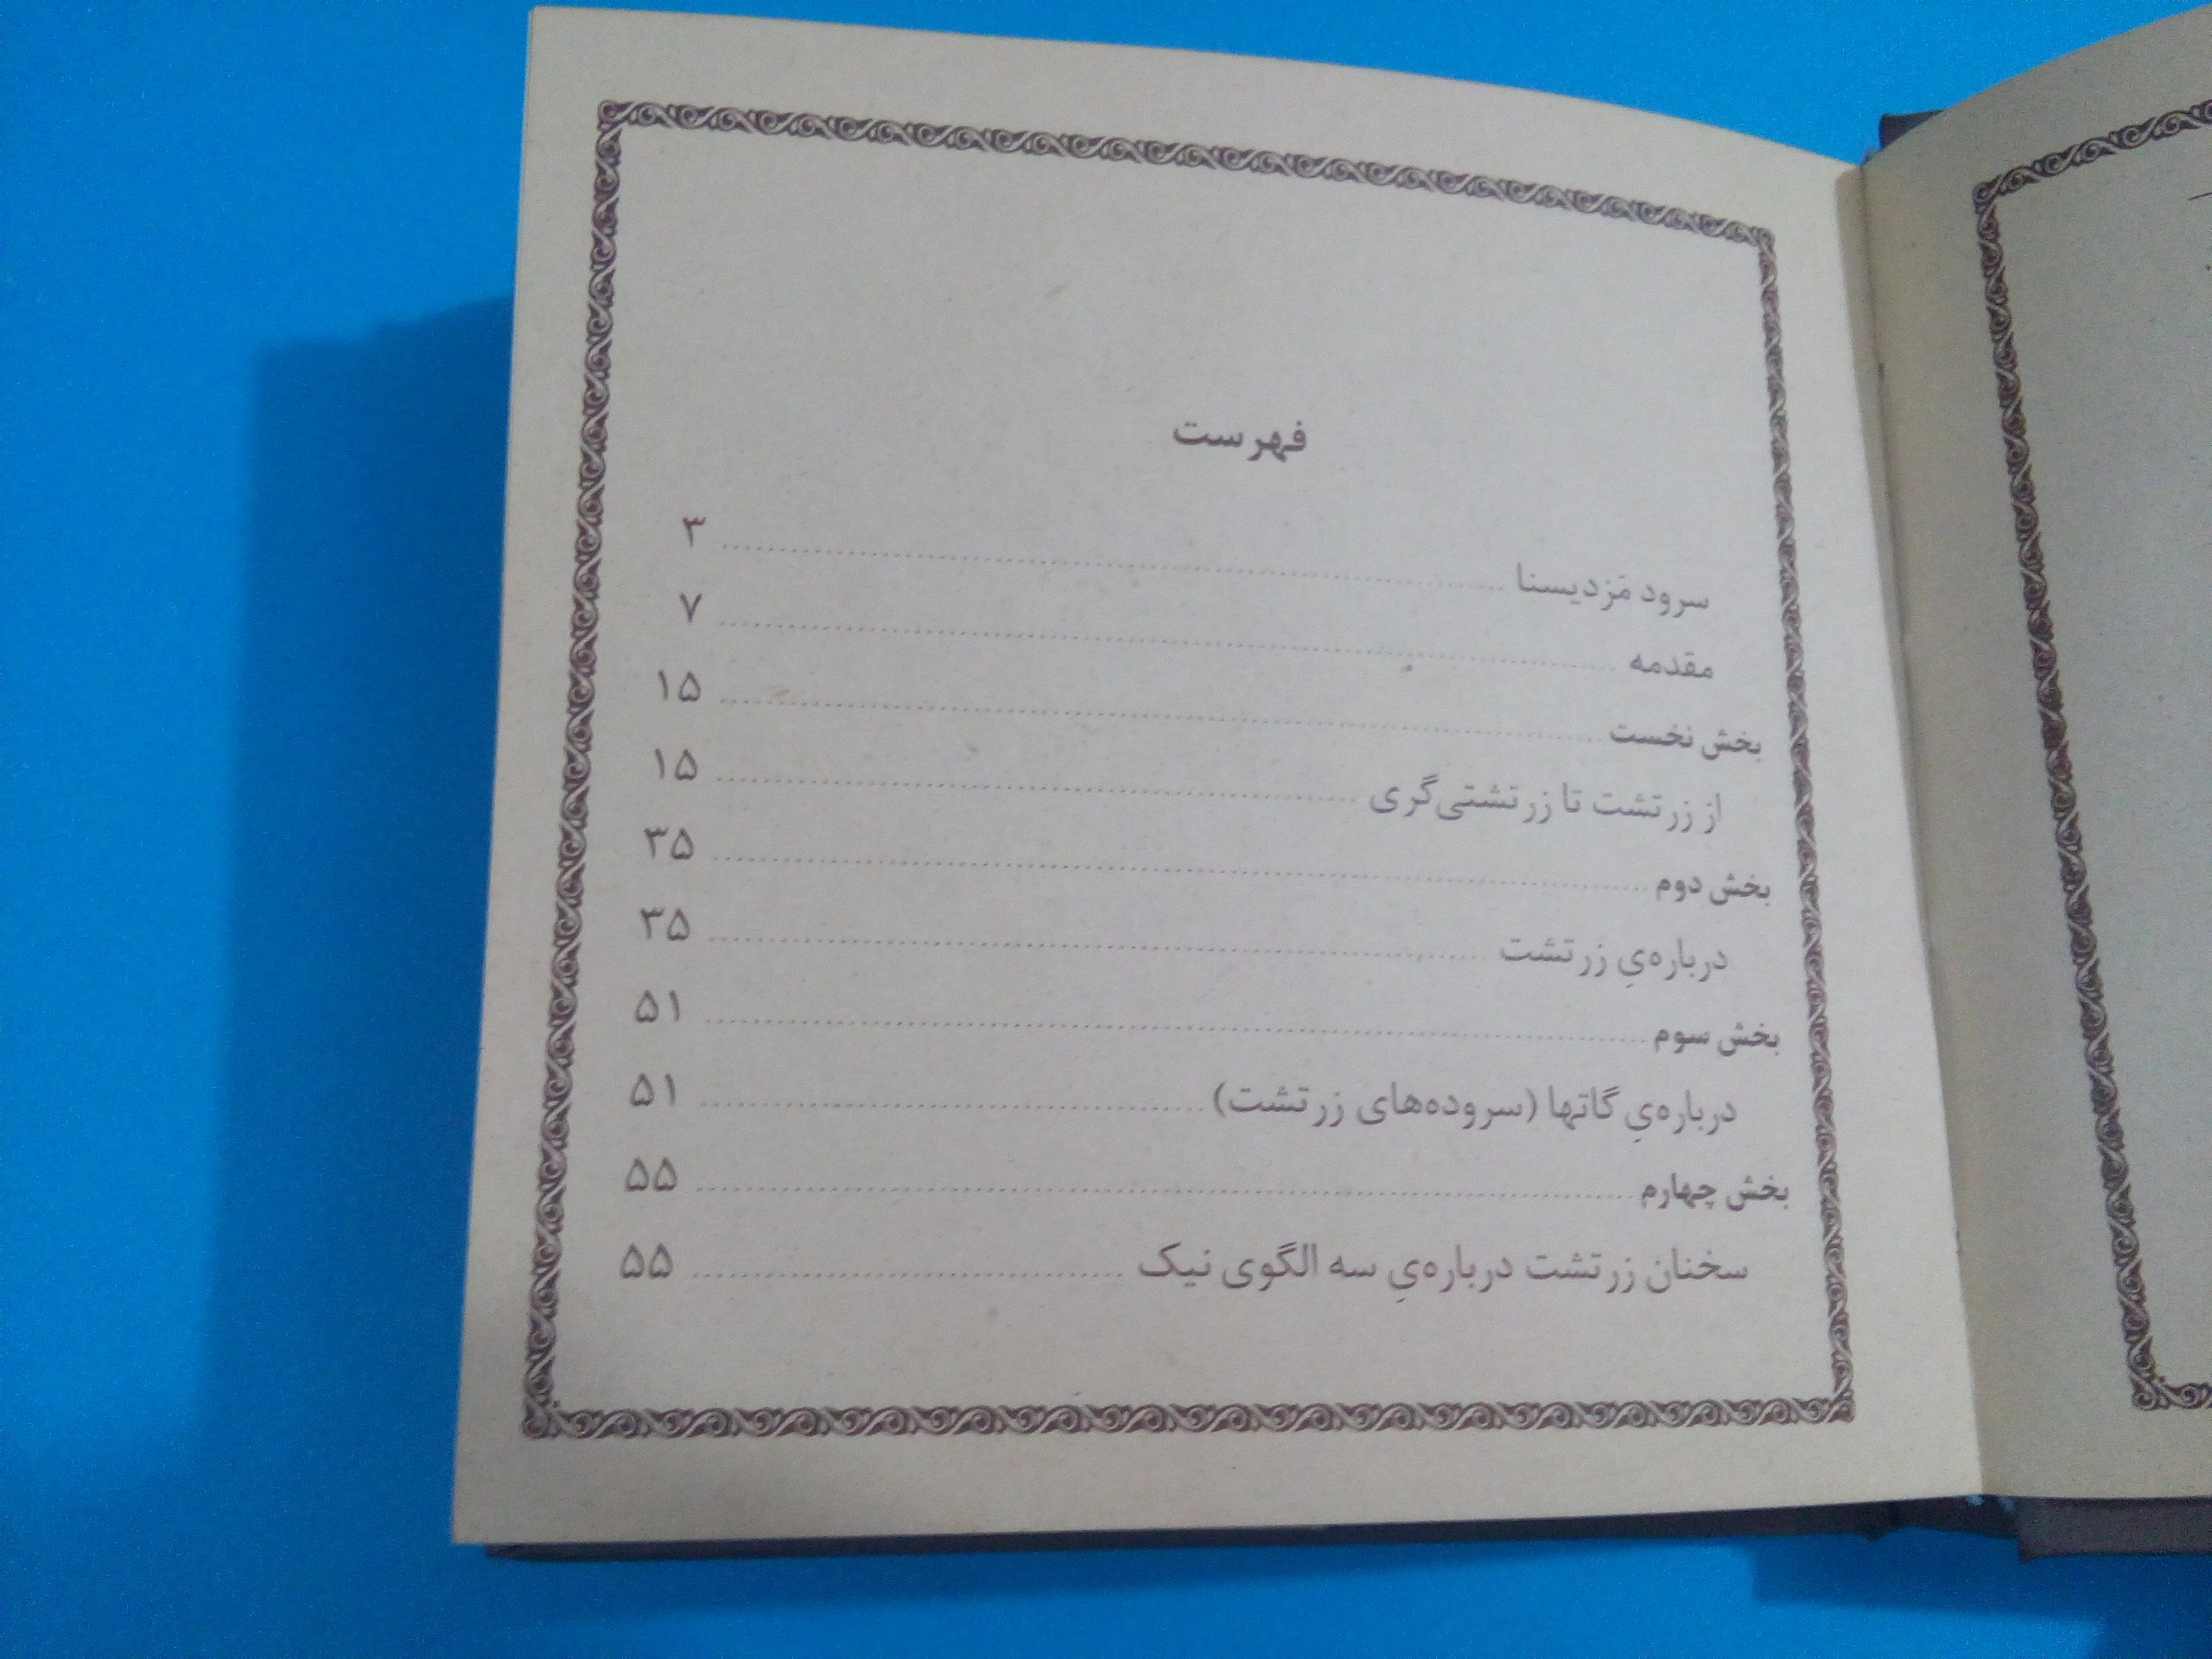 فهرست
سرود مَزدیسنا ........ ۳
مقدمه ........ ۷
بخش نخست ........ ۱۵
از زرتشت تا زرتشتی‌گری ........ ۱۵
بخش دوم ........ ۳۵
درباره‌یِ زرتشت ........ ۳۵
بخش سوم ........ ۵۱
درباره‌یِ گاتها (سروده‌های زرتشت) ........ ۵۱
بخش چهارم ........ ۵۵
سخنان زرتشت درباره‌یِ سه الگوی نیک ........ ۵۵